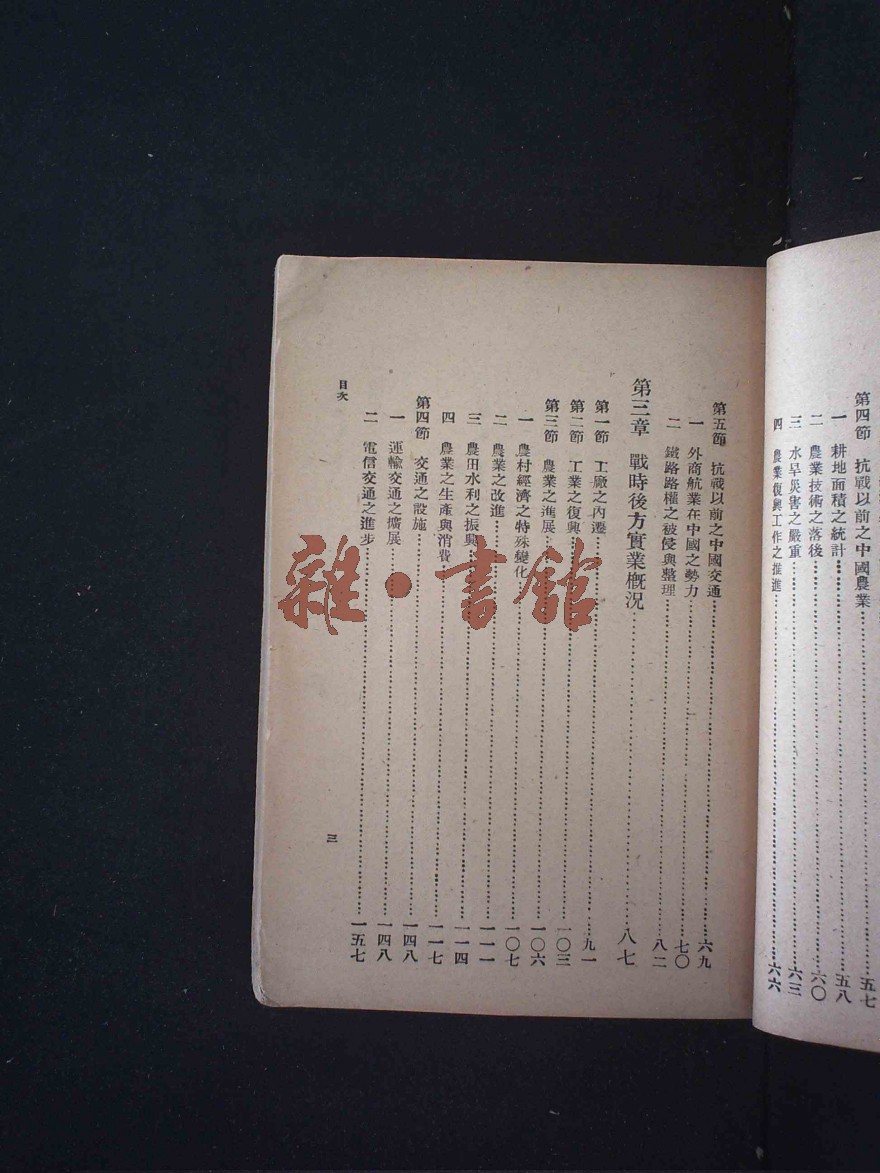 第四節　抗戰以前之中國農業……五七
一　耕地面積之統計……五八
二　農業技術之落後……六〇
三　水旱災害之嚴重……六三
四　農業復興工作之推進……六六
第五節　抗戰以前之中國交通……六九
一　外商航業在中國之勢力……七〇
二　鐵路路權之被侵與整理……八二
第三章　戰時後方實業概況……八七
第一節　工廠之內遷……九一
第二節　工業之復興……一〇三
第三節　農業之進展……一〇六
一　農村經濟之特殊變化……一〇七
二　農業之改進……一一一
三　農田水利之振興……一一四
四　農業之生產與消費……一一七
第四節　交通之設施……一四八
一　運輸交通之擴展……一四八
二　電信交通之進步……一五七
目次
三
雜·書館